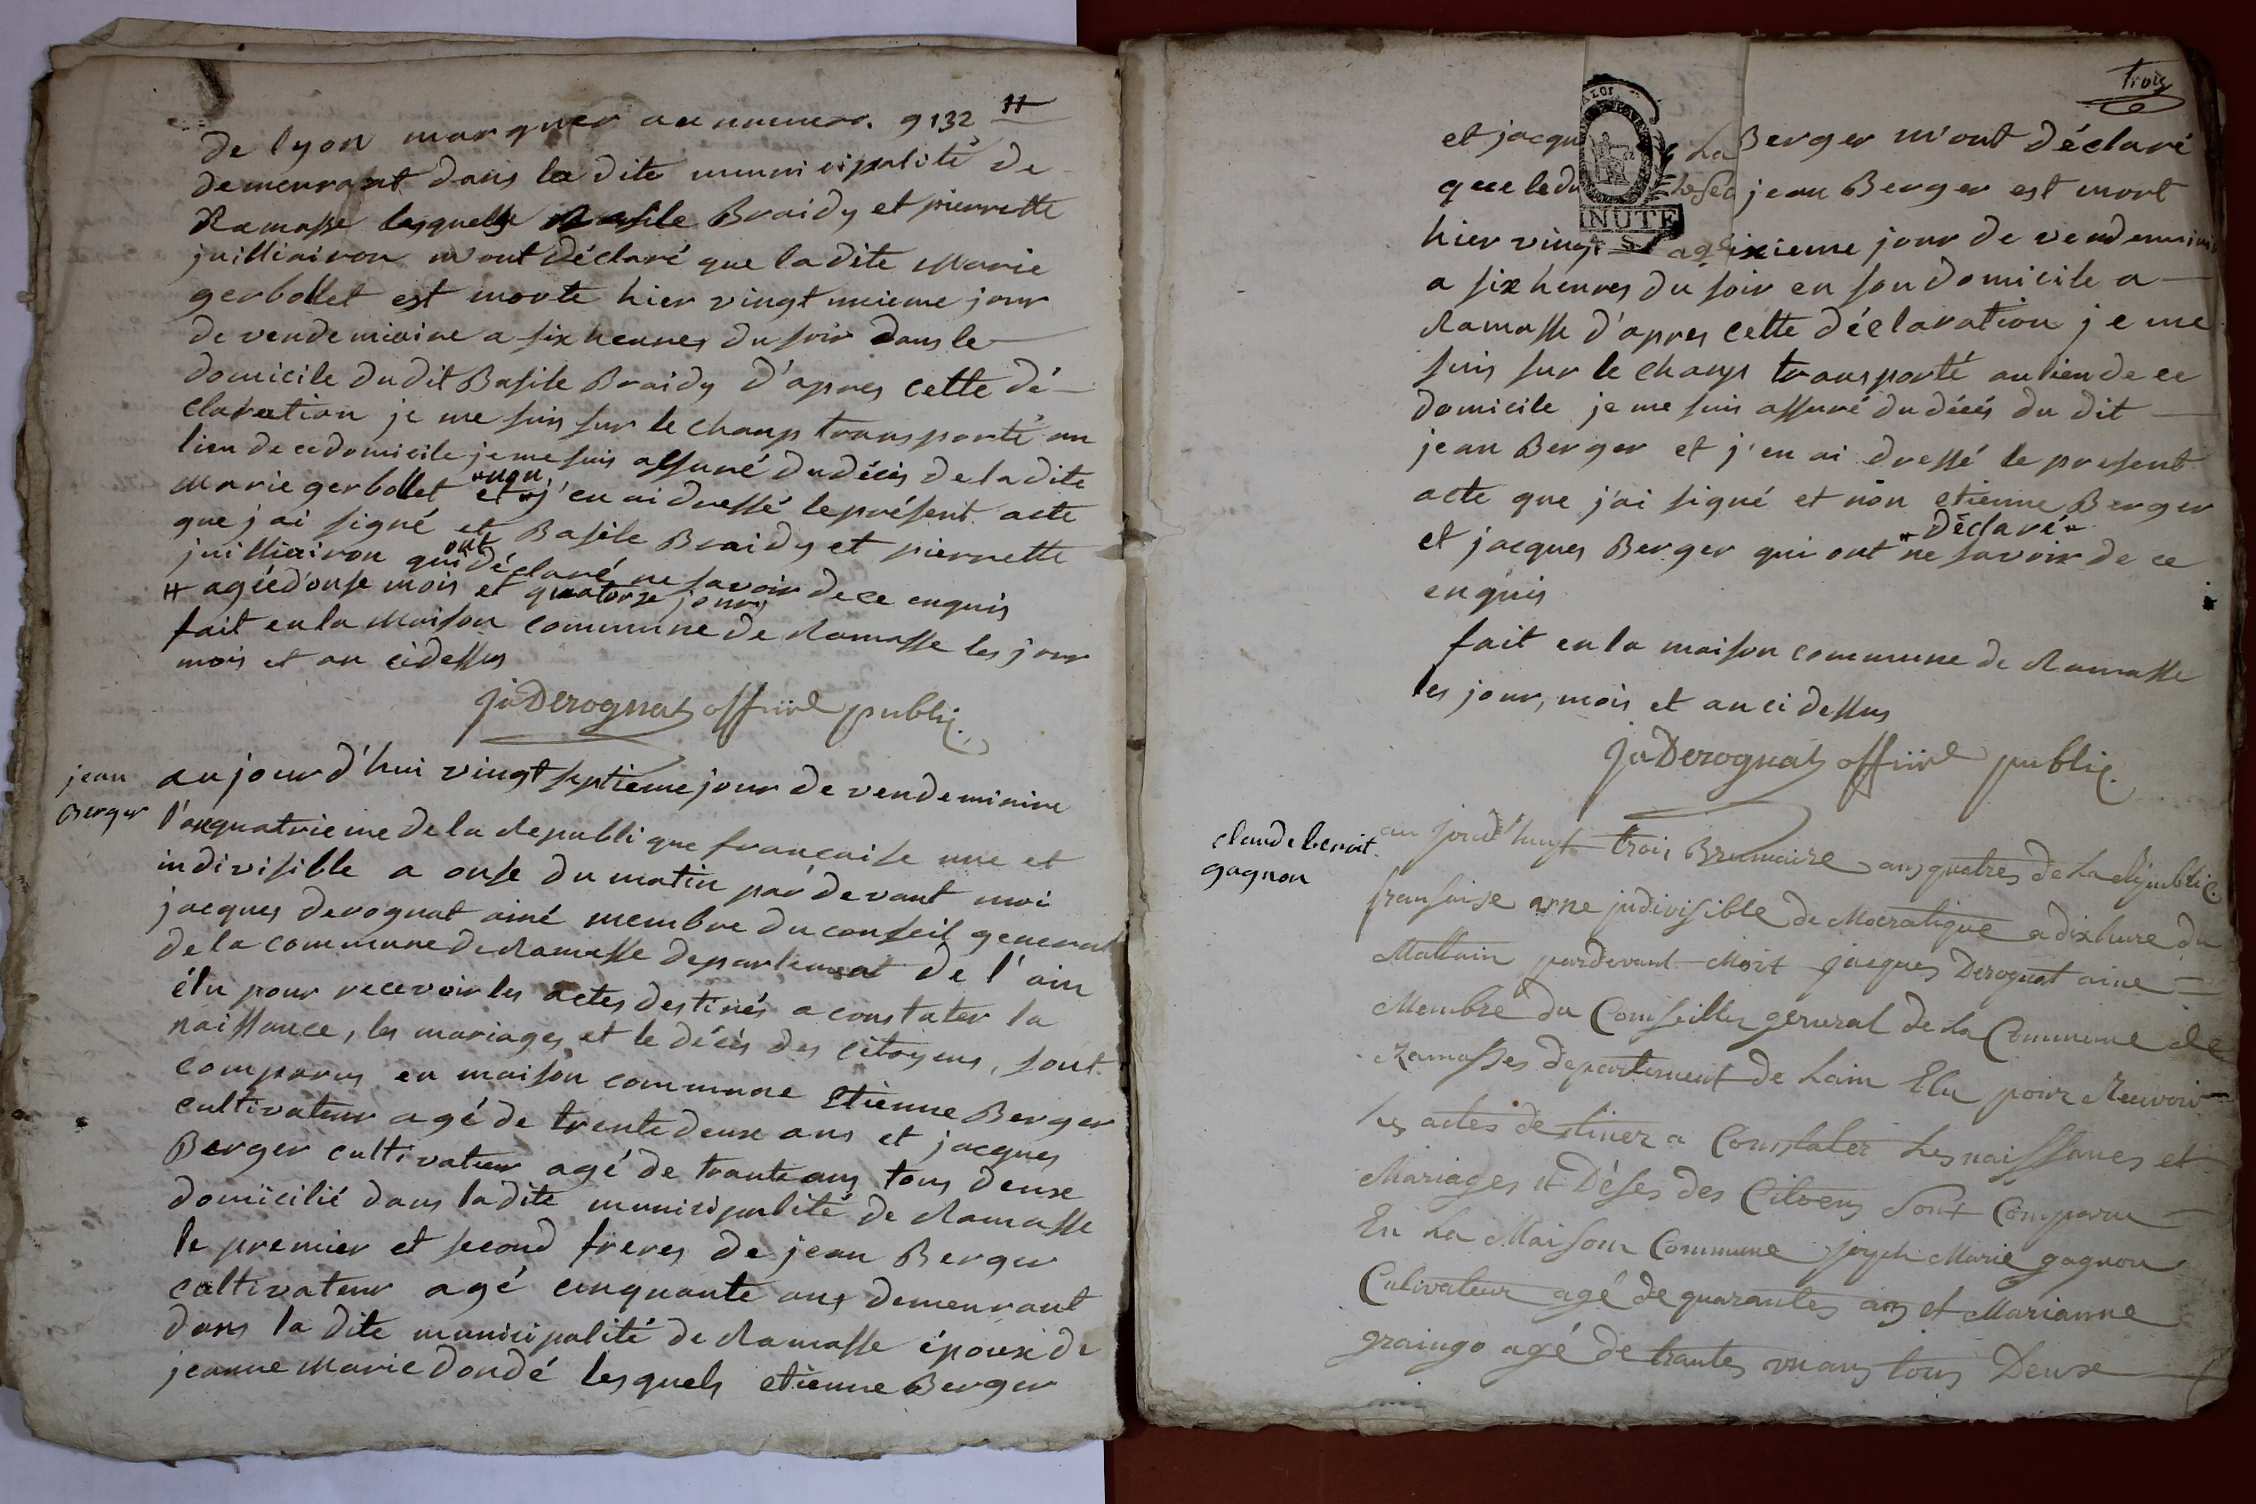 de lyon marquer au numero. 9132 #
demeurant dans la dite municipalité de
Ramasse lesquelle Basile Braidy et pierrette
juilliairon m'ont déclaré que la dite Marie
gerbollet est morte hier vingt unieme jour
de vendemiaire a six heures du soir dans le
domicile du dit Basile Braidy d'apres cette dé-
claration je me suis sur le champ transporté au
lieu de ce domicile je me suis assuré du décès de la dite
Marie gerbollet et j'en ai dressé le présent acte
que j'ai signé et non Basile Braidy et pierrette
juilliairon qui ont déclaré ne savoir de ce enquis
# agée d'onse mois et quatorze jours
fait en la Maison commune de Ramasse les jour
mois et an cidessus
Ja Derognat officié public.
jean
Berger
aujourd'hui vingt septieme jour de vendeminire
l'an quatrieme de la Republique francaise une et
indivisible a onse du matin par devant moi
jacques derognat ainé membre du conseil general
de la commune de Ramasse departement de l'ain
élu pour recevoir les actes destinés a constater la
naissance, les mariages et le décès des citoyens, sont
comparus en maison commune Etienne Berger
cultivateur agé de trente deux ans et jacques
Berger cultivateur agé de trante ans tous deux
domicilié dans la dite municipalité de Ramasse
le premier et second freres de jean Berger
cultivateur agé cinquante ans demeurant
dans la dite municipalité de Ramasse époux de
jeanne Marie dondé lesquels etienne Berger
trois
et jacqu Berger m'ont déclaré
que le du jean Berger est mort
hier vingt sixieme jour de vendemiaire
a six heures du soir en son domicile a
Ramasse d'apres cette déclaration je me
suis sur le champ transporté au lieu de ce
domicile je me suis assuré du décès du dit
jean Berger et j'en ai dressé le present
acte que j'ai signé et non etienne Berger
et jacques Berger qui ont déclaré ne savoir de ce
enquis
fait en la maison commune de Ramasse
les jour, mois et an ci dessus
Ja Derognat officié public.
claude benoit
gagnon
au jourd'huy trois Brumaire ans quatres de la Republic.
fransaise une judivisible de Mocratique a dix heure du
Mattain pardevant Moit jacques Derognat aine
Membre du Conseilles general de la Commune de
Ramasses departement de Lain Elu poir Recevoir
les actes destiner a Constater les naissances et
Mariages et Déses des Citoens Sont Comparu
En La Maison Commune joseph Marie gagnon
Culivateur agé de quarantes ans et Marianne
graingo agé de trantes un ans tous Deux